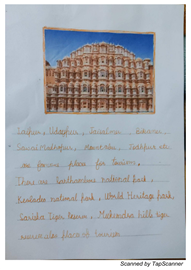 Jaipur, Udaipur, Jaisalmer, Bikaner,
Sawai Madhopur, Mount Abu, Jodhpur etc
are famous place for tourism.
There are Ranthambore national park,
Keoladeo national park, World Heritage park,
Sariska Tiger Reserve, Mukundra hills tiger
reserve also place of tourism
Scanned by TapScanner